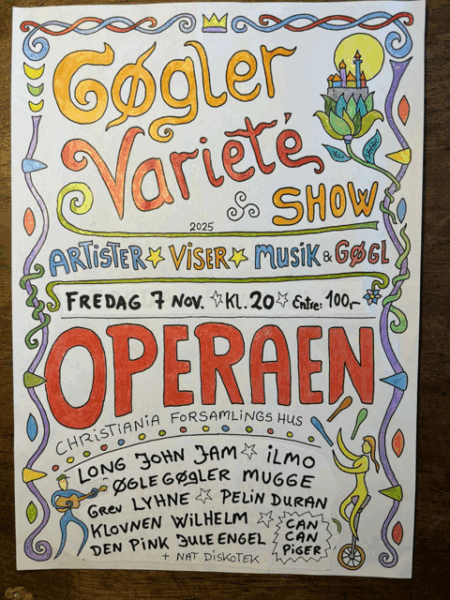 Gøgler
Varieté
SHOW
2025
ARTISTER☆VISER☆MUSIK & GØGL
FREDAG 7 NOV. ☆ KL. 20 ☆ Entre: 100,-
OPERAEN
CHRISTIANIA FORSAMLINGSHUS
LONG JOHN JAM ☆ ILMO
ØGLEGØGLER MUGGE
GREV LYHNE ☆ PELIN DURAN
KLOVNEN WILHELM ☆
DEN PINK JULEENGEL
CAN
CAN
PIGER
+ NAT DISKOTEK